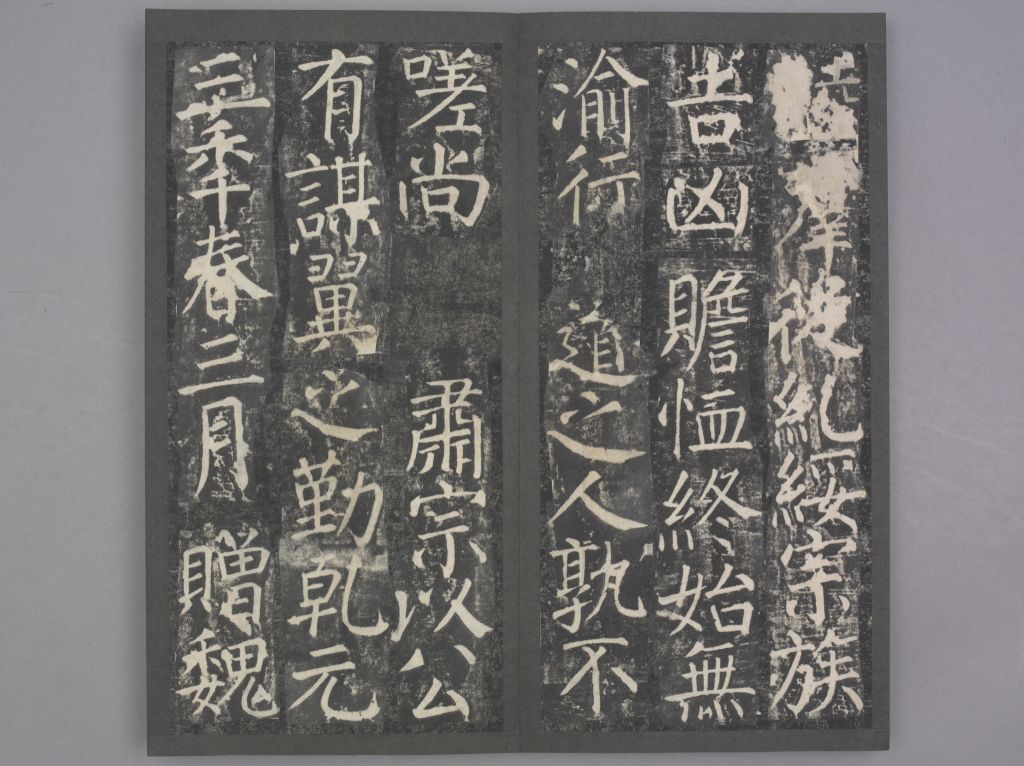 糺綏宗族
吉凶贍恤終始無
渝行道之人孰不
嗟尚 肅宗以公
有謀翼之勤乾元
春三月 贈魏